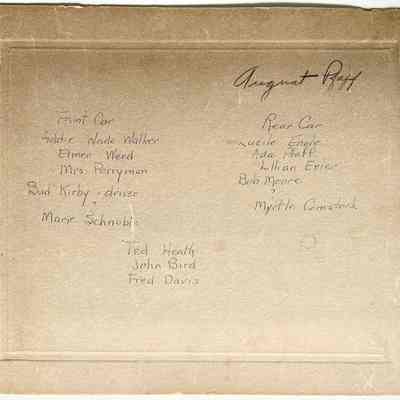 August Pfaff
Front Car
Eddie Wade Walker
Elmer Weed
Mrs. Perryman
Bud Kirby - driver
?
Marie Schnable
Rear Car
Lucile Engle
Ada Pfaff
Lillian Eeier
Bob Moore
?
Myrtle Comstock
Ted Heath
John Bird
Fred Davis